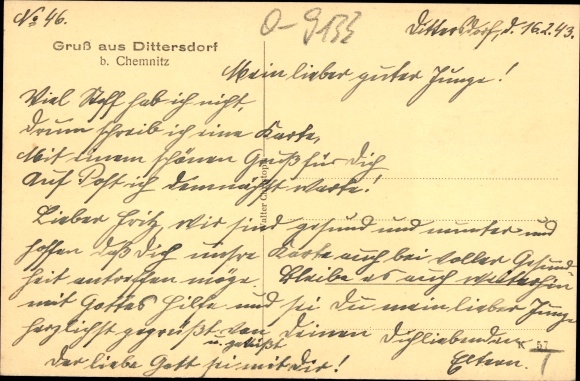 No 46.
0-9133
Dittersdorf, d. 16.2.43.
Gruß aus Dittersdorf
b. Chemnitz
Mein lieber guter Junge!
Viel Stoff hab ich nicht,
drum schreib ich eine Karte,
Mit einem schönen Gruß für Dich
Auf Post ich demnächst warte!
Lieber Fritz, wir sind gesund und munter und
hoffen daß Dich unsre Karte auch bei voller Gesund
heit antreffen möge. Bleibe es auch weiterhin
mit Gottes Hilfe und sei Du mein lieber Junge
herzlichst gegrüßt von Deinen Dichliebenden
u. geküßt
Eltern.
Der liebe Gott sei mit Dir!
K 57